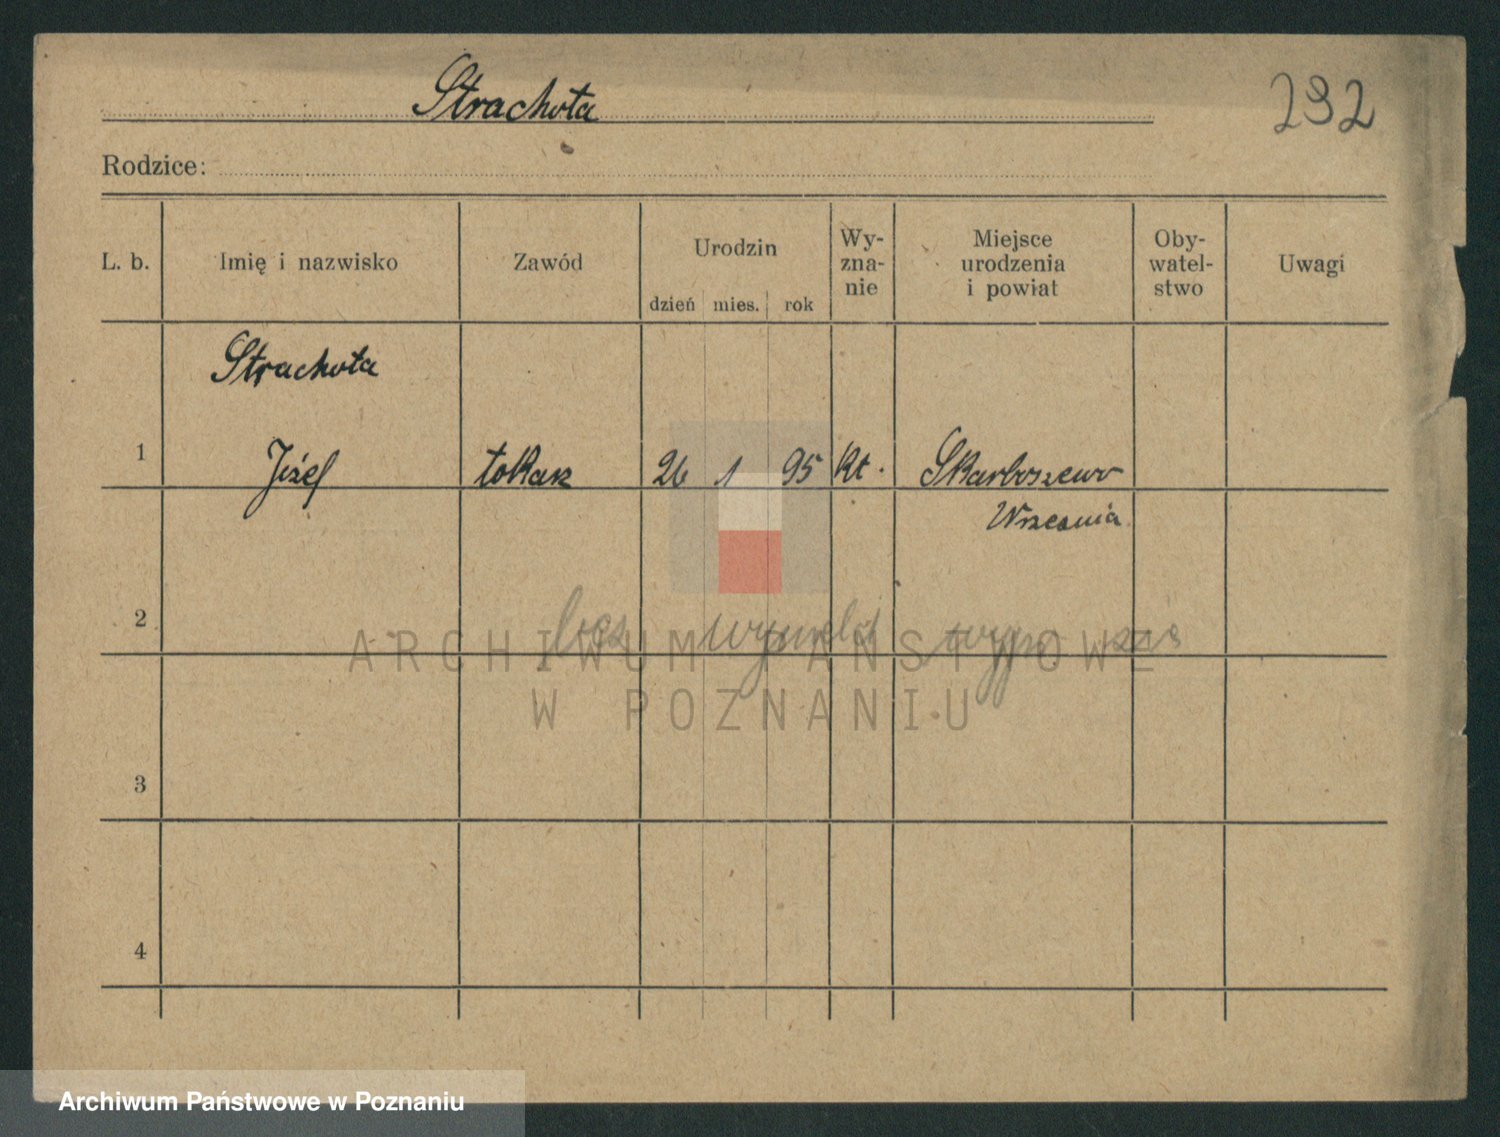 Strachota
292
Rodzice:
L. b.
Imię i nazwisko
Zawód
Urodzin
dzień mies. rok
Wy-
zna-
nie
Miejsce
urodzenia
i powiat
Oby-
watel-
stwo
Uwagi
Strachota
1 Józef tokarz 26 1 95 kt. Skarboszewo
Wrzesnia
2
bez
ARCHIWUM PAŃSTWOWE
W POZNANIU
3
4
Archiwum Państwowe w Poznaniu